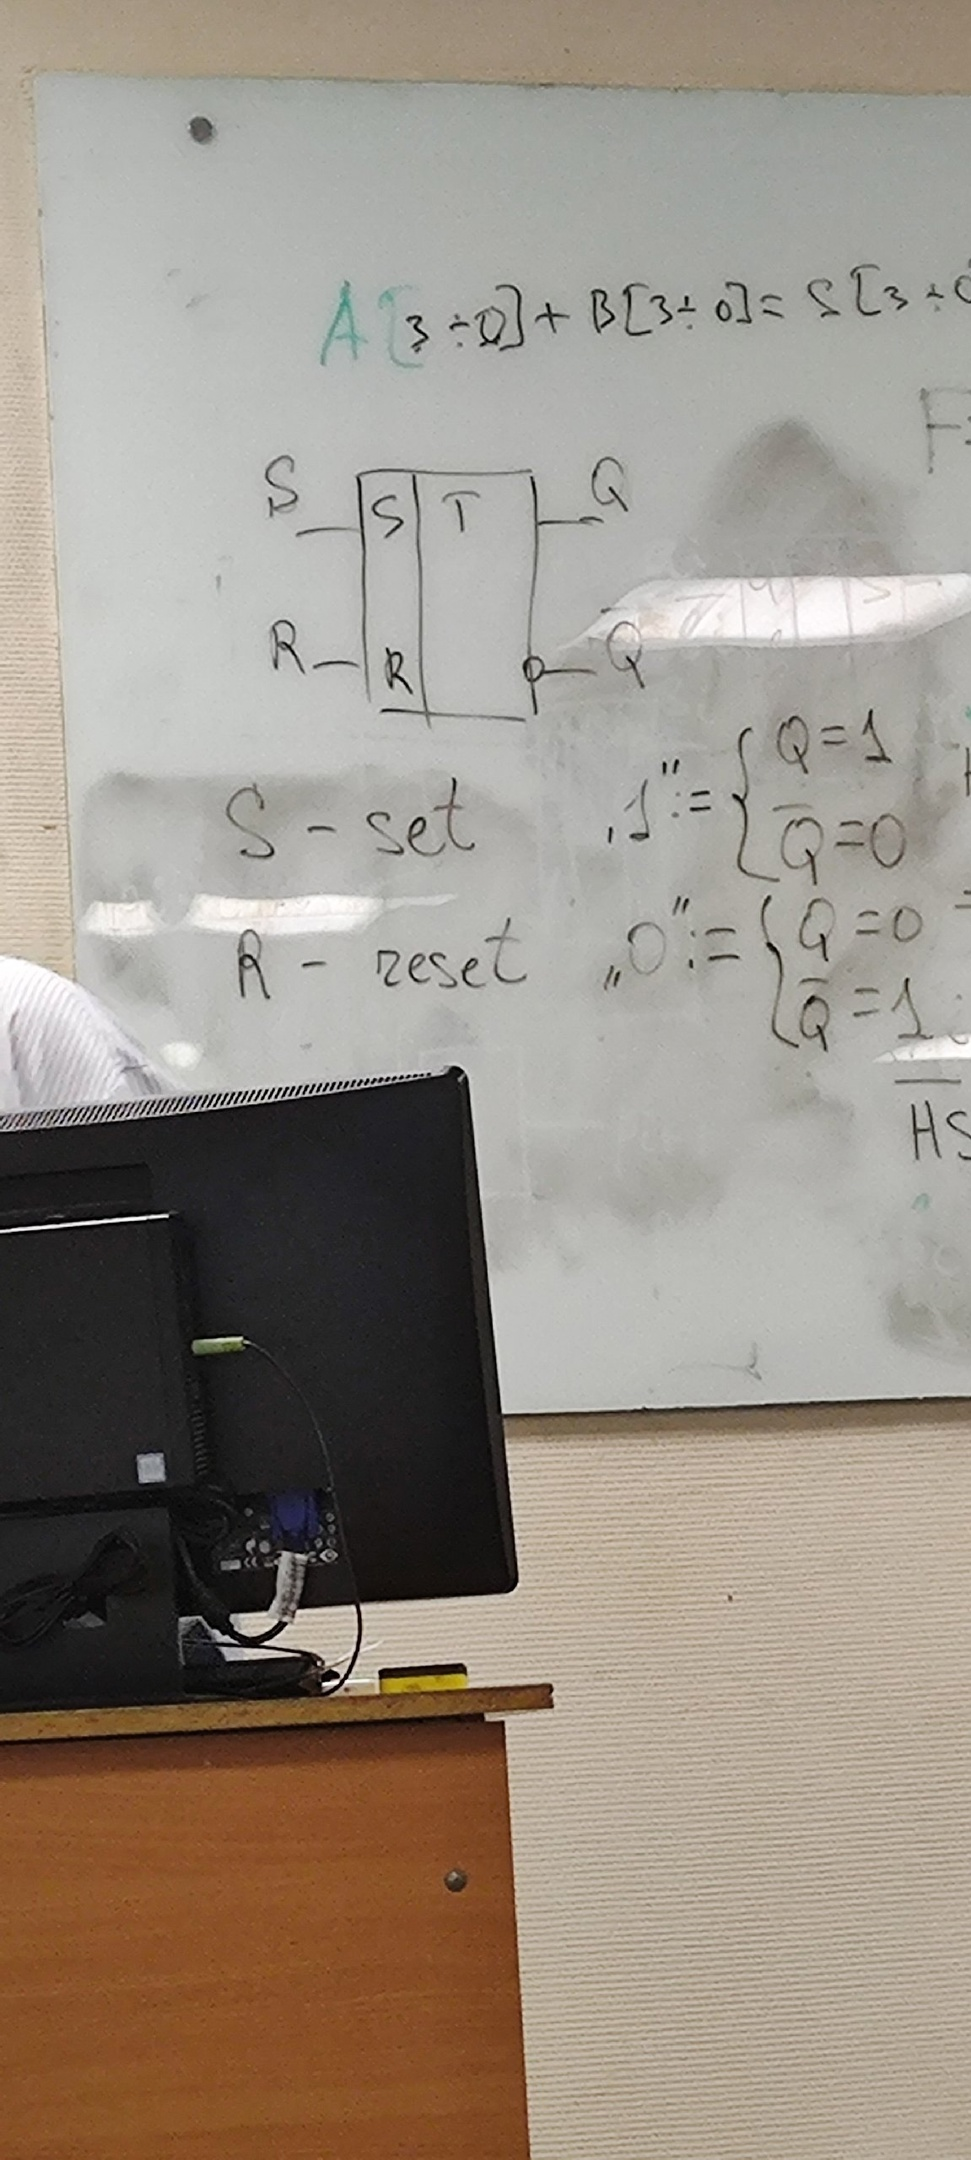 A[3÷0]+B[3÷0]=S[3÷
S S T Q
R R Q̅
S - set „1":= { Q=1
Q̅=0
R - reset „0":= { Q=0
Q̅=1
HS